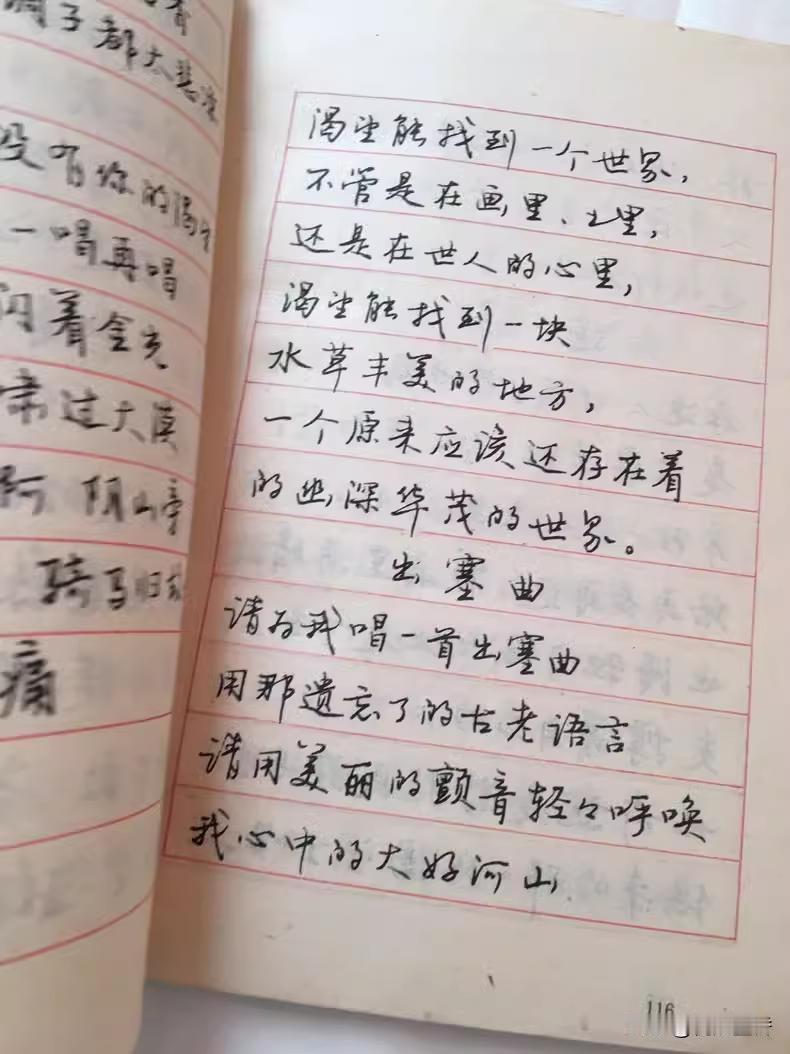 调子都太悲凉
没有你的渴望
一唱再唱
闪着金光
过大漠
河 阴山旁
骑马归
痛
渴望能找到一个世界，
不管是在画里、书里，
还是在世人的心里，
渴望能找到一块
水草丰美的地方，
一个原来应该还存在着
的幽深华茂的世界。
出塞曲
请为我唱一首出塞曲
用那遗忘了的古老语言
请用美丽的颤音轻々呼唤
我心中的大好河山
116